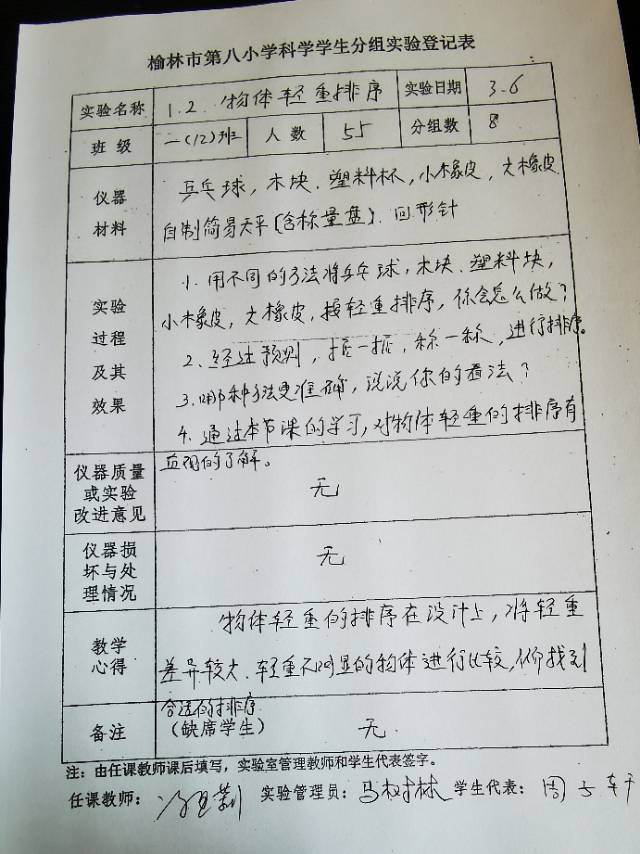 榆林市第八小学科学学生分组实验登记表
实验名称 1.2 物体轻重排序 实验日期 3.6
班级 一(12)班 人数 55 分组数 8
仪器材料 乒乓球，木块．塑料杯，小橡皮，大橡皮
自制简易天平(含称量盘)．回形针
实验过程及其效果 1.用不同的方法将乒乓球，木块．塑料块，
小橡皮，大橡皮，按轻重排序，你会怎么做？
2.经过预测，掂一掂，称一称，进行排序。
3.哪种方法更准确，说说你的看法？
4.通过本节课的学习，对物体轻重的排序有
的了解。
仪器质量或实验改进意见 无
仪器损坏与处理情况 无
教学心得 物体轻重的排序在设计上，将轻重
差异较大．轻重不明显的物体进行比较，找到
合适的排序
备注 (缺席学生) 无
注：由任课教师课后填写，实验室管理教师和学生代表签字。
任课教师： 实验管理员：马树林 学生代表：周